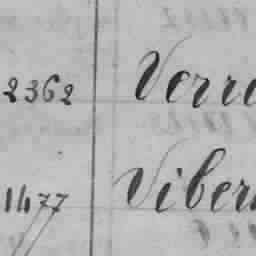 2362 Verre
1477 Viber